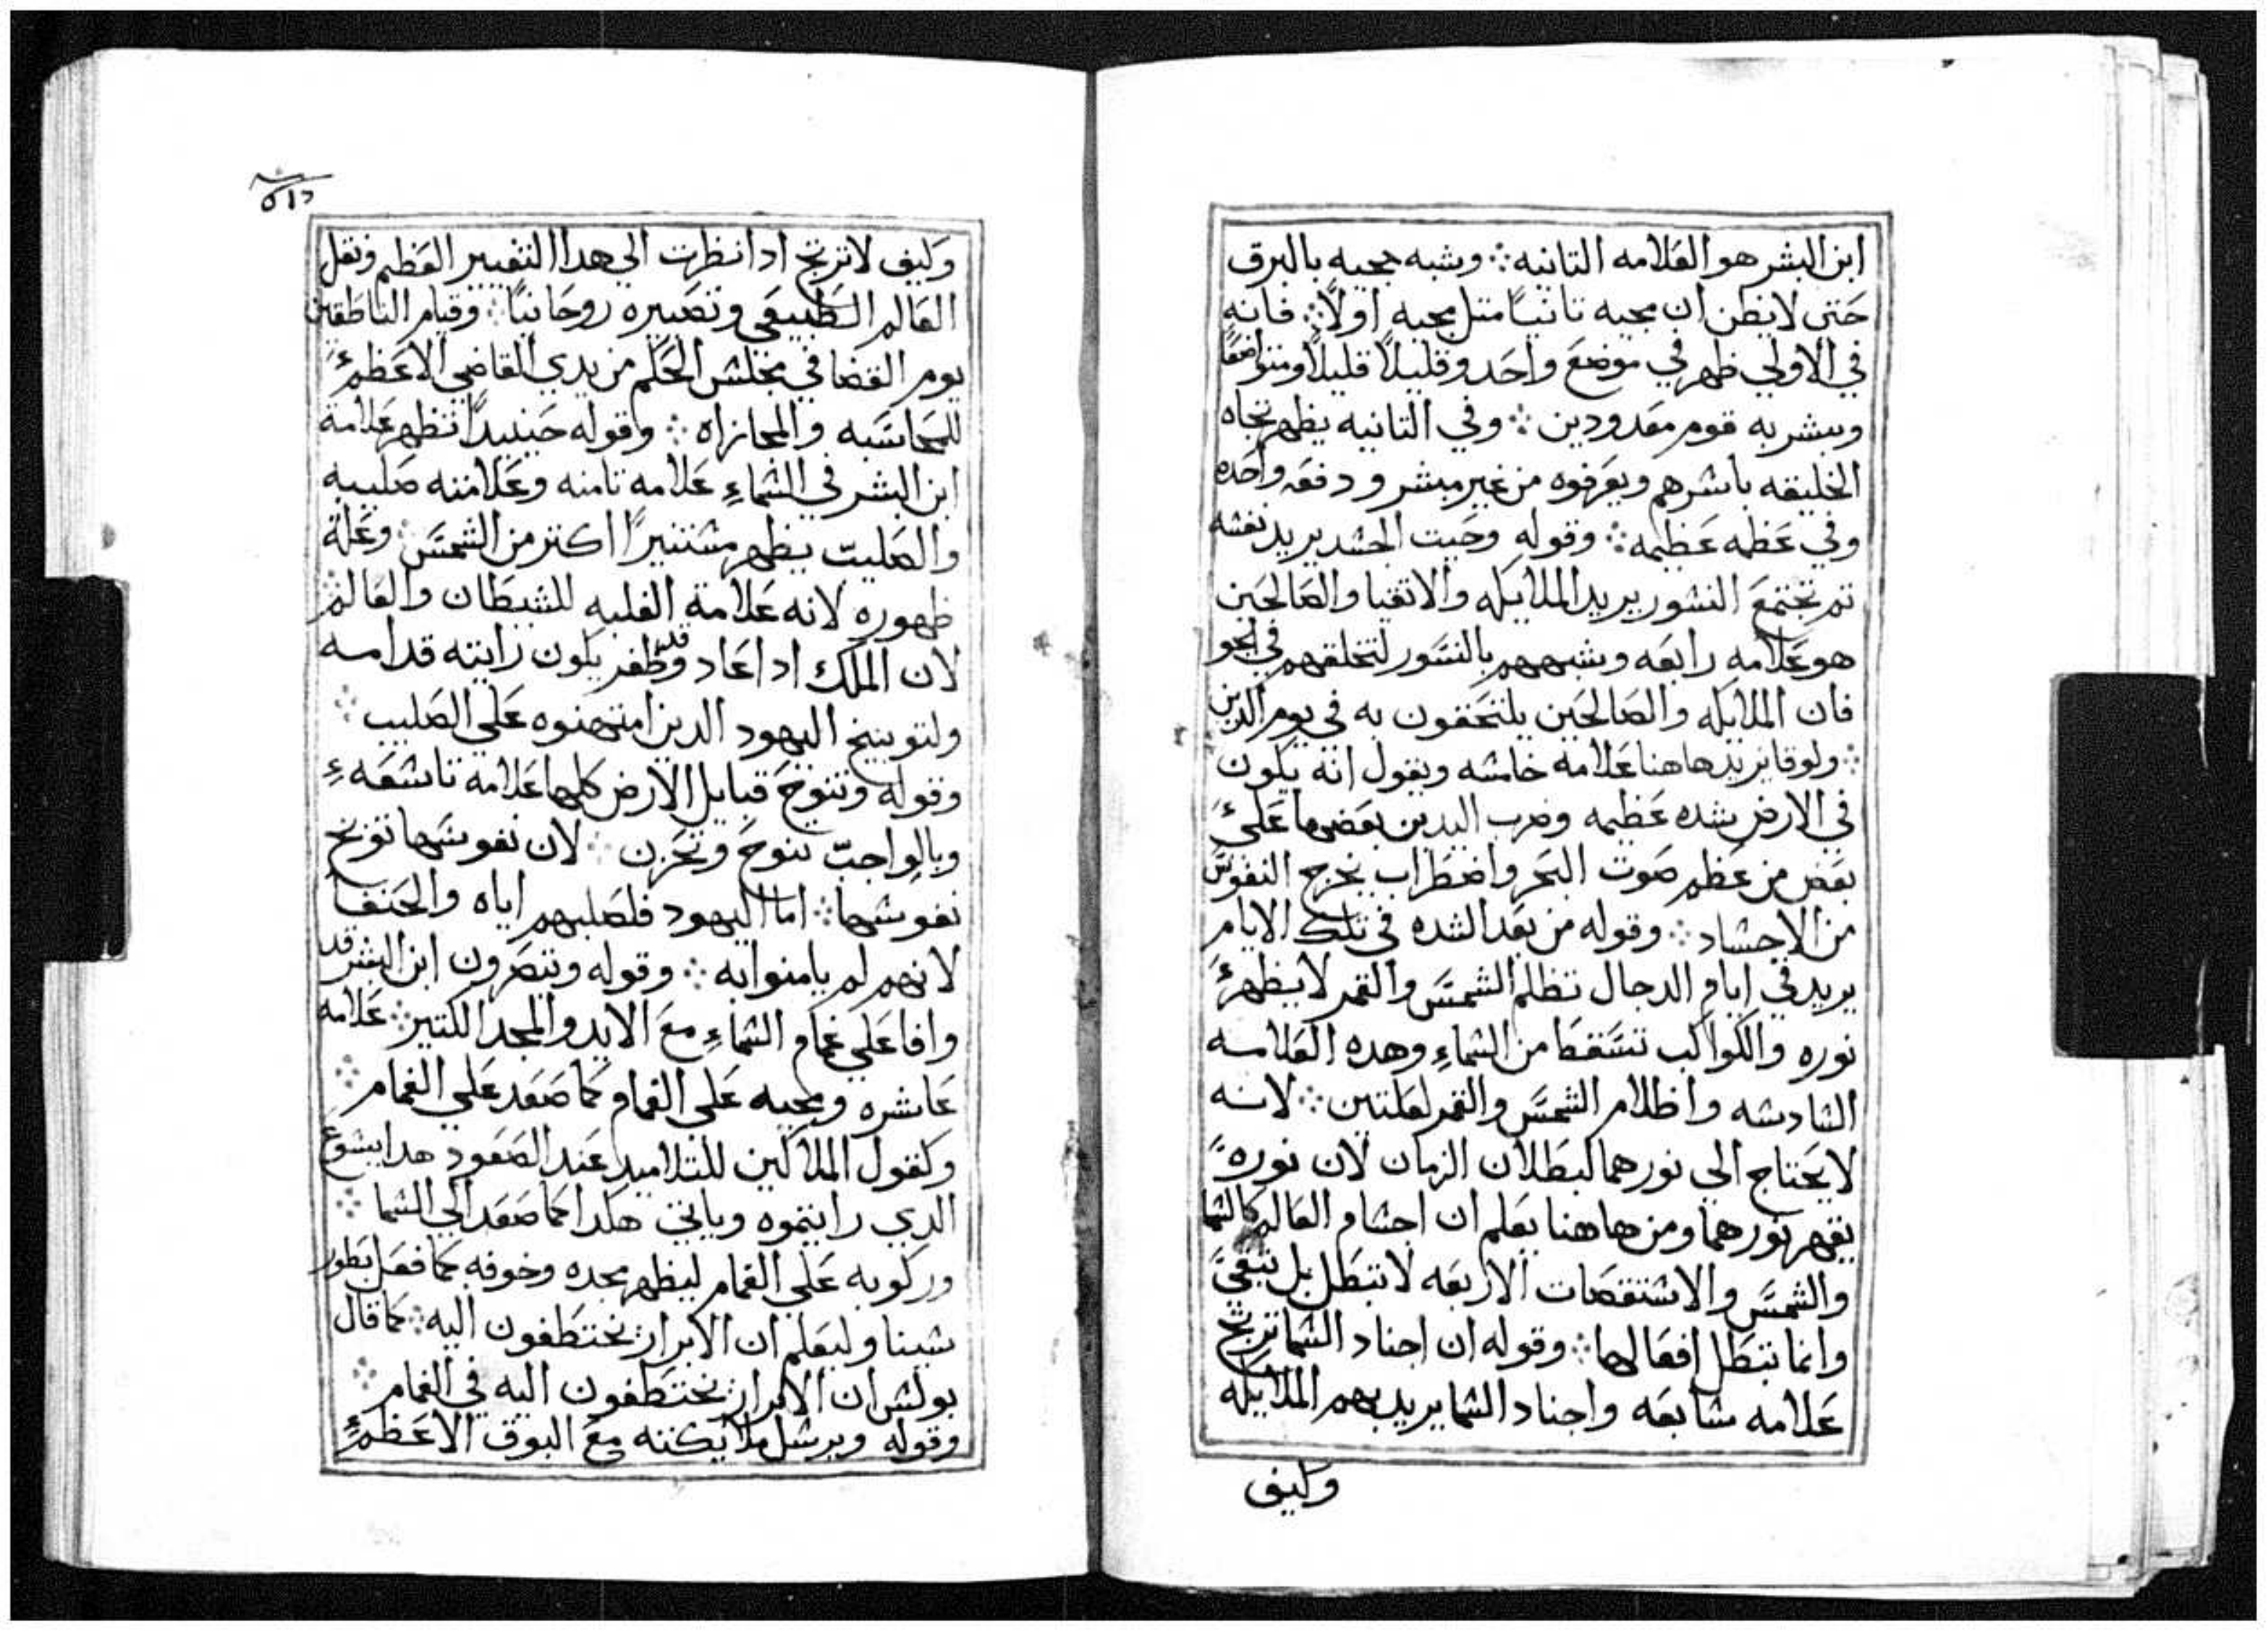 ابن البشر هو العلامه التانيه ∴ وشبه مجيه بالبرق
حتى لا نظن ان مجيه تانيًا متل مجيه اولًا ∴ فانه
في الاولي ظهر في موضع واحد وقليلًا قليلًا ومتواضعًا
وبشر به قوم معدودين ∴ وفي التانيه يظهر تجاه
الخليقه باسرهم ويعرفوه من غير مبشر ودفعه واحده
وفي عظمه عظيمه ∴ وقوله وحيت الجسد يريد نفسه
تم تجتمع النسور يريد الملايكه والاتقيا والصالحين
هو علامه رابعه وشبههم بالنسور لتحلقهم في الجو
فان الملايكه والصالحين يلتحفون به في يوم الدين
∴ ولوقا يزيد هاهنا علامه خامسه ويقول انه يكون
في الارض شده عظيمه وضرب اليدين بعضها على
بعض من عظم صوت البحر واضطراب يخرج النفوس
من الاجساد ∴ وقوله من بعد الشده في تلك الايام
يريد في ايام الدجال تظلم الشمس والقمر لا يظهر
نوره والكواكب تسقط من السماءِ وهده العلامه
السادسه واظلام الشمس والقمر لعلتين ∴ لانه
لا يحتاج الي نورهما لبطلان الزمان لان نوره
يقهر نورهما ومن هاهنا يعلم ان اجسام العالم كالسما
والشمس والاستقصات الاربعه لا تبطل بل تبقى
وانما تبطل افعالها ∴ وقوله ان اجناد السما ترتج
علامه سابعه واجناد السما يريد بهم الملايكه
وكيف
وكيف لا ترتج ادا نظرت الي هدا التغيير العظيم ونقل
العالم الطبيعي وتصييره روحانيًا ∴ وقيام الناطقين
يوم القضا في مجلس الحكم من يدي القاضي الاعظم
للمحاسبه والمجازاه ∴ وقوله حينيدًا تظهر علامة
ابن البشر في السماءِ علامه تامنه وعلامته صليبه
والصليب يظهر مستنيرًا اكتر من الشمس ∴ وعلة
ظهوره لانه علامة الغلبه للشيطان والعالم
لان الملك ادا عاد وقد ظفر يكون رايته قدامه
ولتوبيخ اليهود الدين امتهنوه علي الصليب ∴
وقوله وتنوح قبايل الارض كلها علامة تاسعه
وبالواجب تنوح وتحزن ∴ لان نفوسها توبخ
نفوسها ∴ اما اليهود فلصلبهم اياه والحنفا
لانهم لم يامنوا به ∴ وقوله وتنصرون ابن البشر قد
وافا علي غمام السماءِ مع الايد والمجد الكتير ∴ علامه
عاشره ومجيه علي الغمام كما صعد علي الغمام ∴
وكقول الملاكين للتلاميد عند الصعود هدا يسوع
الدي رايتموه وياتي هكدا كما صعد الي السما ∴
وركوبه علي الغمام ليظهر مجده وخوفه كما فعل بطور
سينا وليعلم ان الابرار يختطفون اليه ∴ كما قال
بولس ان الابرار يختطفون اليه في الغمام ∴
وقوله ويرسل ملايكته مع البوق الاعظم